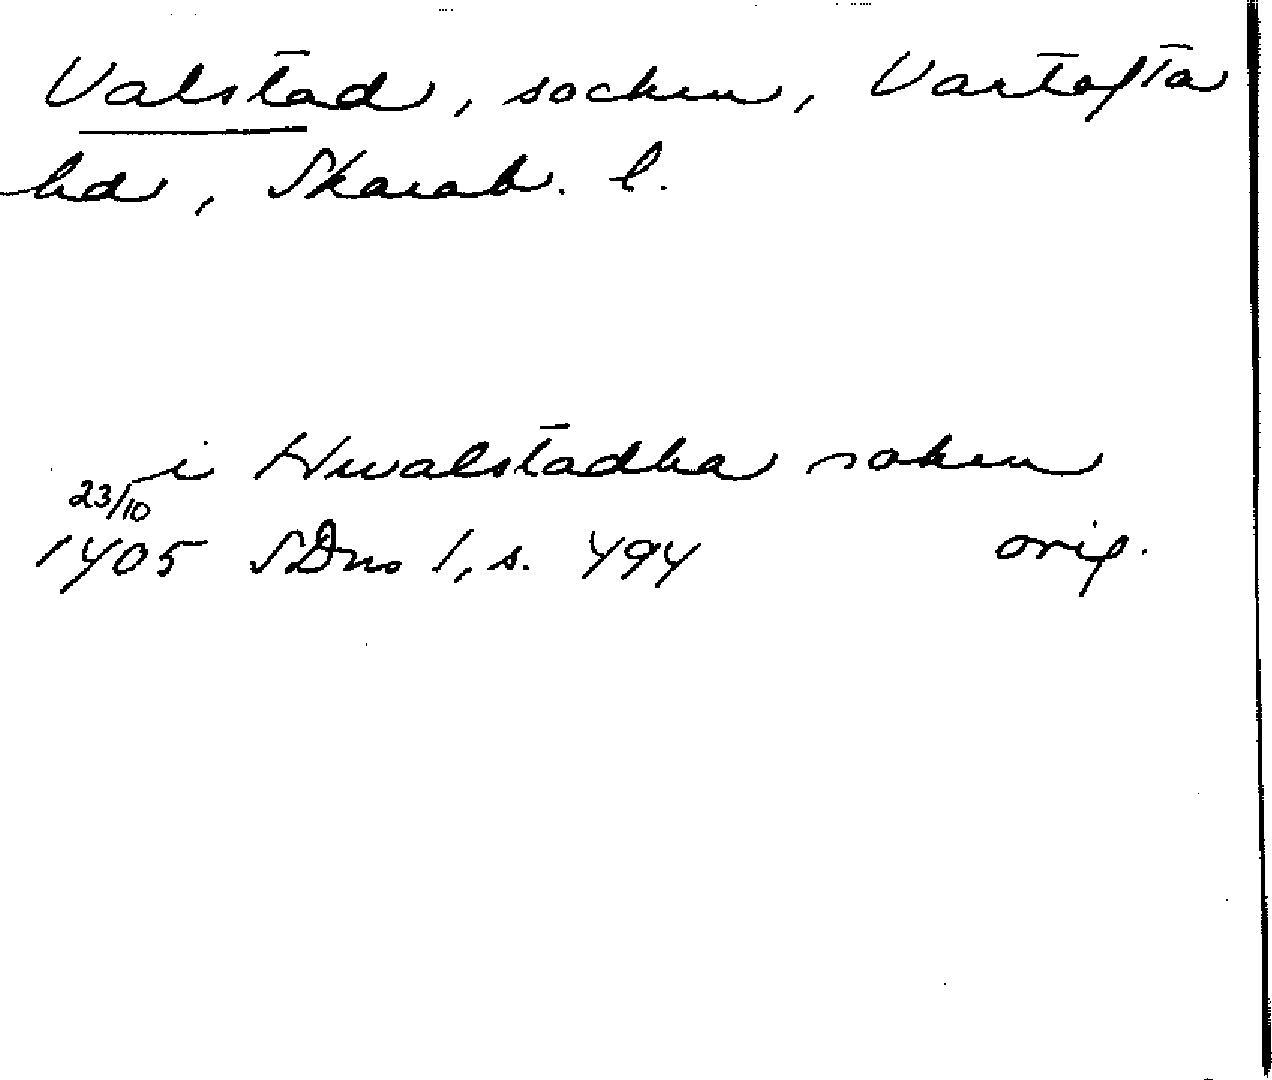 Valstad, socken, Vartofta
hd, Skarab. l.
i Hwalstadha soken
23/10
1405 SDns 1, s. 494 orig.